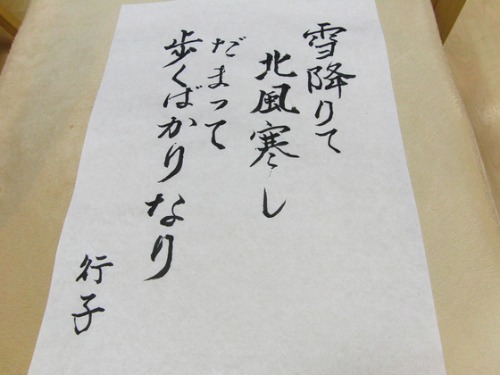 雪降りて
北風寒し
だまって
歩くばかりなり
行子